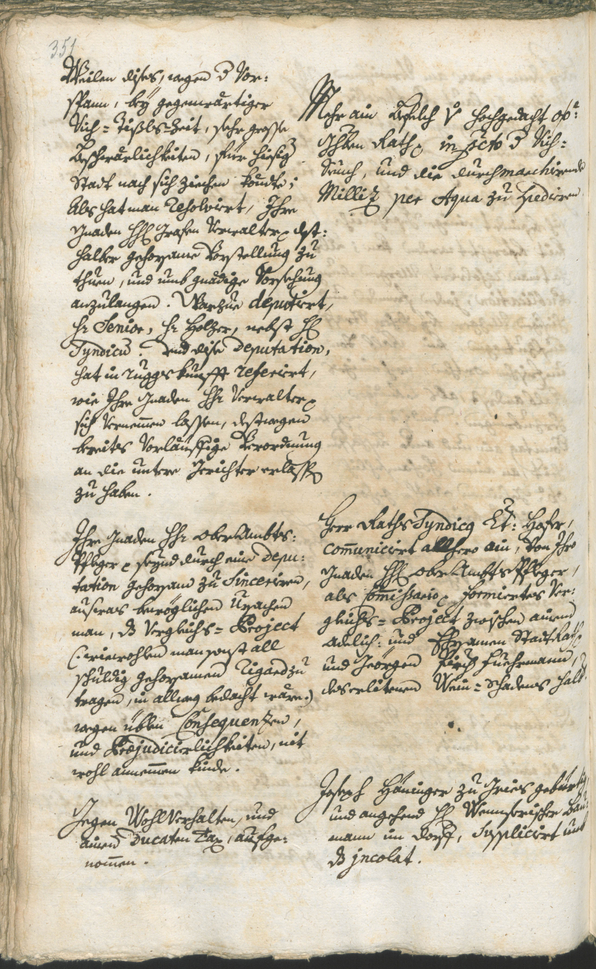 351.
Weilen dises, wegen d Vor=
spann, bey gegenwärtiger
Vich= Zeit, sehr grosse
Beschwärlichkeiten, für hiesig
Statt nach sich ziehen könte;
Als hat man resolvirt, Ihro
Gnaden Grafen Verwalter dest=
halber gehorsame Vorstellung zu
thuen, und umb gnädige Vorsehung
anzulangen. Warzue deputirt,
hr Senior, hr Holzer, nebst
Syndicū. Und dise Deputation,
hat in ruggskunfft referirt,
wie Ihro Gnaden Verwalter
sich vernemmen lassen, destwegen
bereits Vorläuffige Verordnung
an die untere Gerichter erlassn
zu haben.
Ihro Gnaden Oberambts=
Pfleger seynd durch eine Depu=
tation gehorsam zu Sinceriren,
auß was beweglichen Ursachen
man, ds Vergleichs= Project
(wiewohlen man sonst all
schuldig gehorsamen Rigard zu
tragen, in allweg bedacht wäre)
wegen üblen Consequentzen,
und Præjudicirlichkeiten, nit
wohl annemmen künde.
Gegen Wohlverhalten, und
ainem Ducaten Tax, aufge=
nommen.
Mehr ain Befelch V hochgedacht O:Ö:
Gehben Rath, in pcto d Vich=
Seuch, und die durchmarchirende
Militz per Aqua zu spediren
Herr Raths Syndicq Lt: Hofer,
communicirt allhero ain, von Ihro
Gnaden Oberambts Pfleger,
als Comissario formiertes Ver=
gleichs= Project zwischen ainem
adelich: und Ehrsamen Stadt Rath
und Georgen Fürch Fuehrmann,
des erlitenen Wein= Schadens halb.
Joseph Häninger zu Gries gebürtig
und angehend Wennserischer Bau=
mann im Dorf, supplicirt umb
ds jncolat.